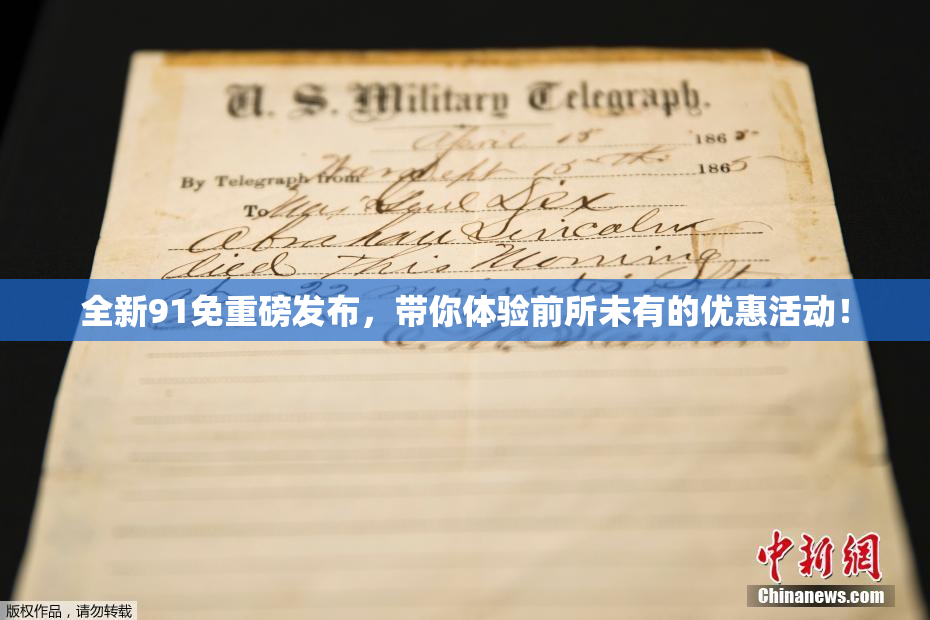 U. S. Military Telegraph.
April 15 1865
By Telegraph from War Dept 15th 1865
To Maj Genl Dix
Abraham Lincoln
died This Morning
at 22 minutes after
全新91免重磅发布，带你体验前所未有的优惠活动！
E. M. Stanton
中新网
Chinanews.com
版权作品，请勿转载